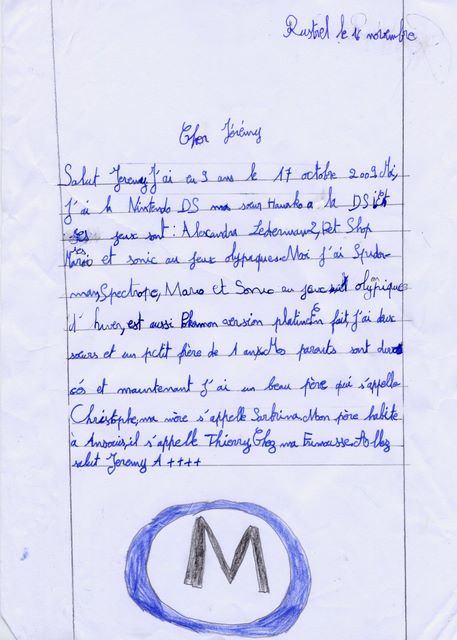 Rustrel le 16 novembre
Cher Jérémy
Salut Jeremy J'ai eu 9 ans le 17 octobre 2009. Moi,
j'ai la Nintendo DS ma sœur Hanako a la DS et
ses jeux sont : Alexandra Ledermann 2, Pet Shop
Mario et sonic au jeux olypeques. Moi j'ai Spider-
man, Spectrope, Mario et Sonic au jeux olympique
d'hiver, est aussi Pokamon version platine En fait, j'ai deux
sœurs et un petit frère de 1 an. Mes parents sont divor
cés et maintenant j'ai un beau père qui s'appelle
Christophe, ma mère s'appelle Sabrina. Mon père habite
à Ansouis, il s'appelle Thierry Chez ma. Allez
salut Jeremy A ++++
M